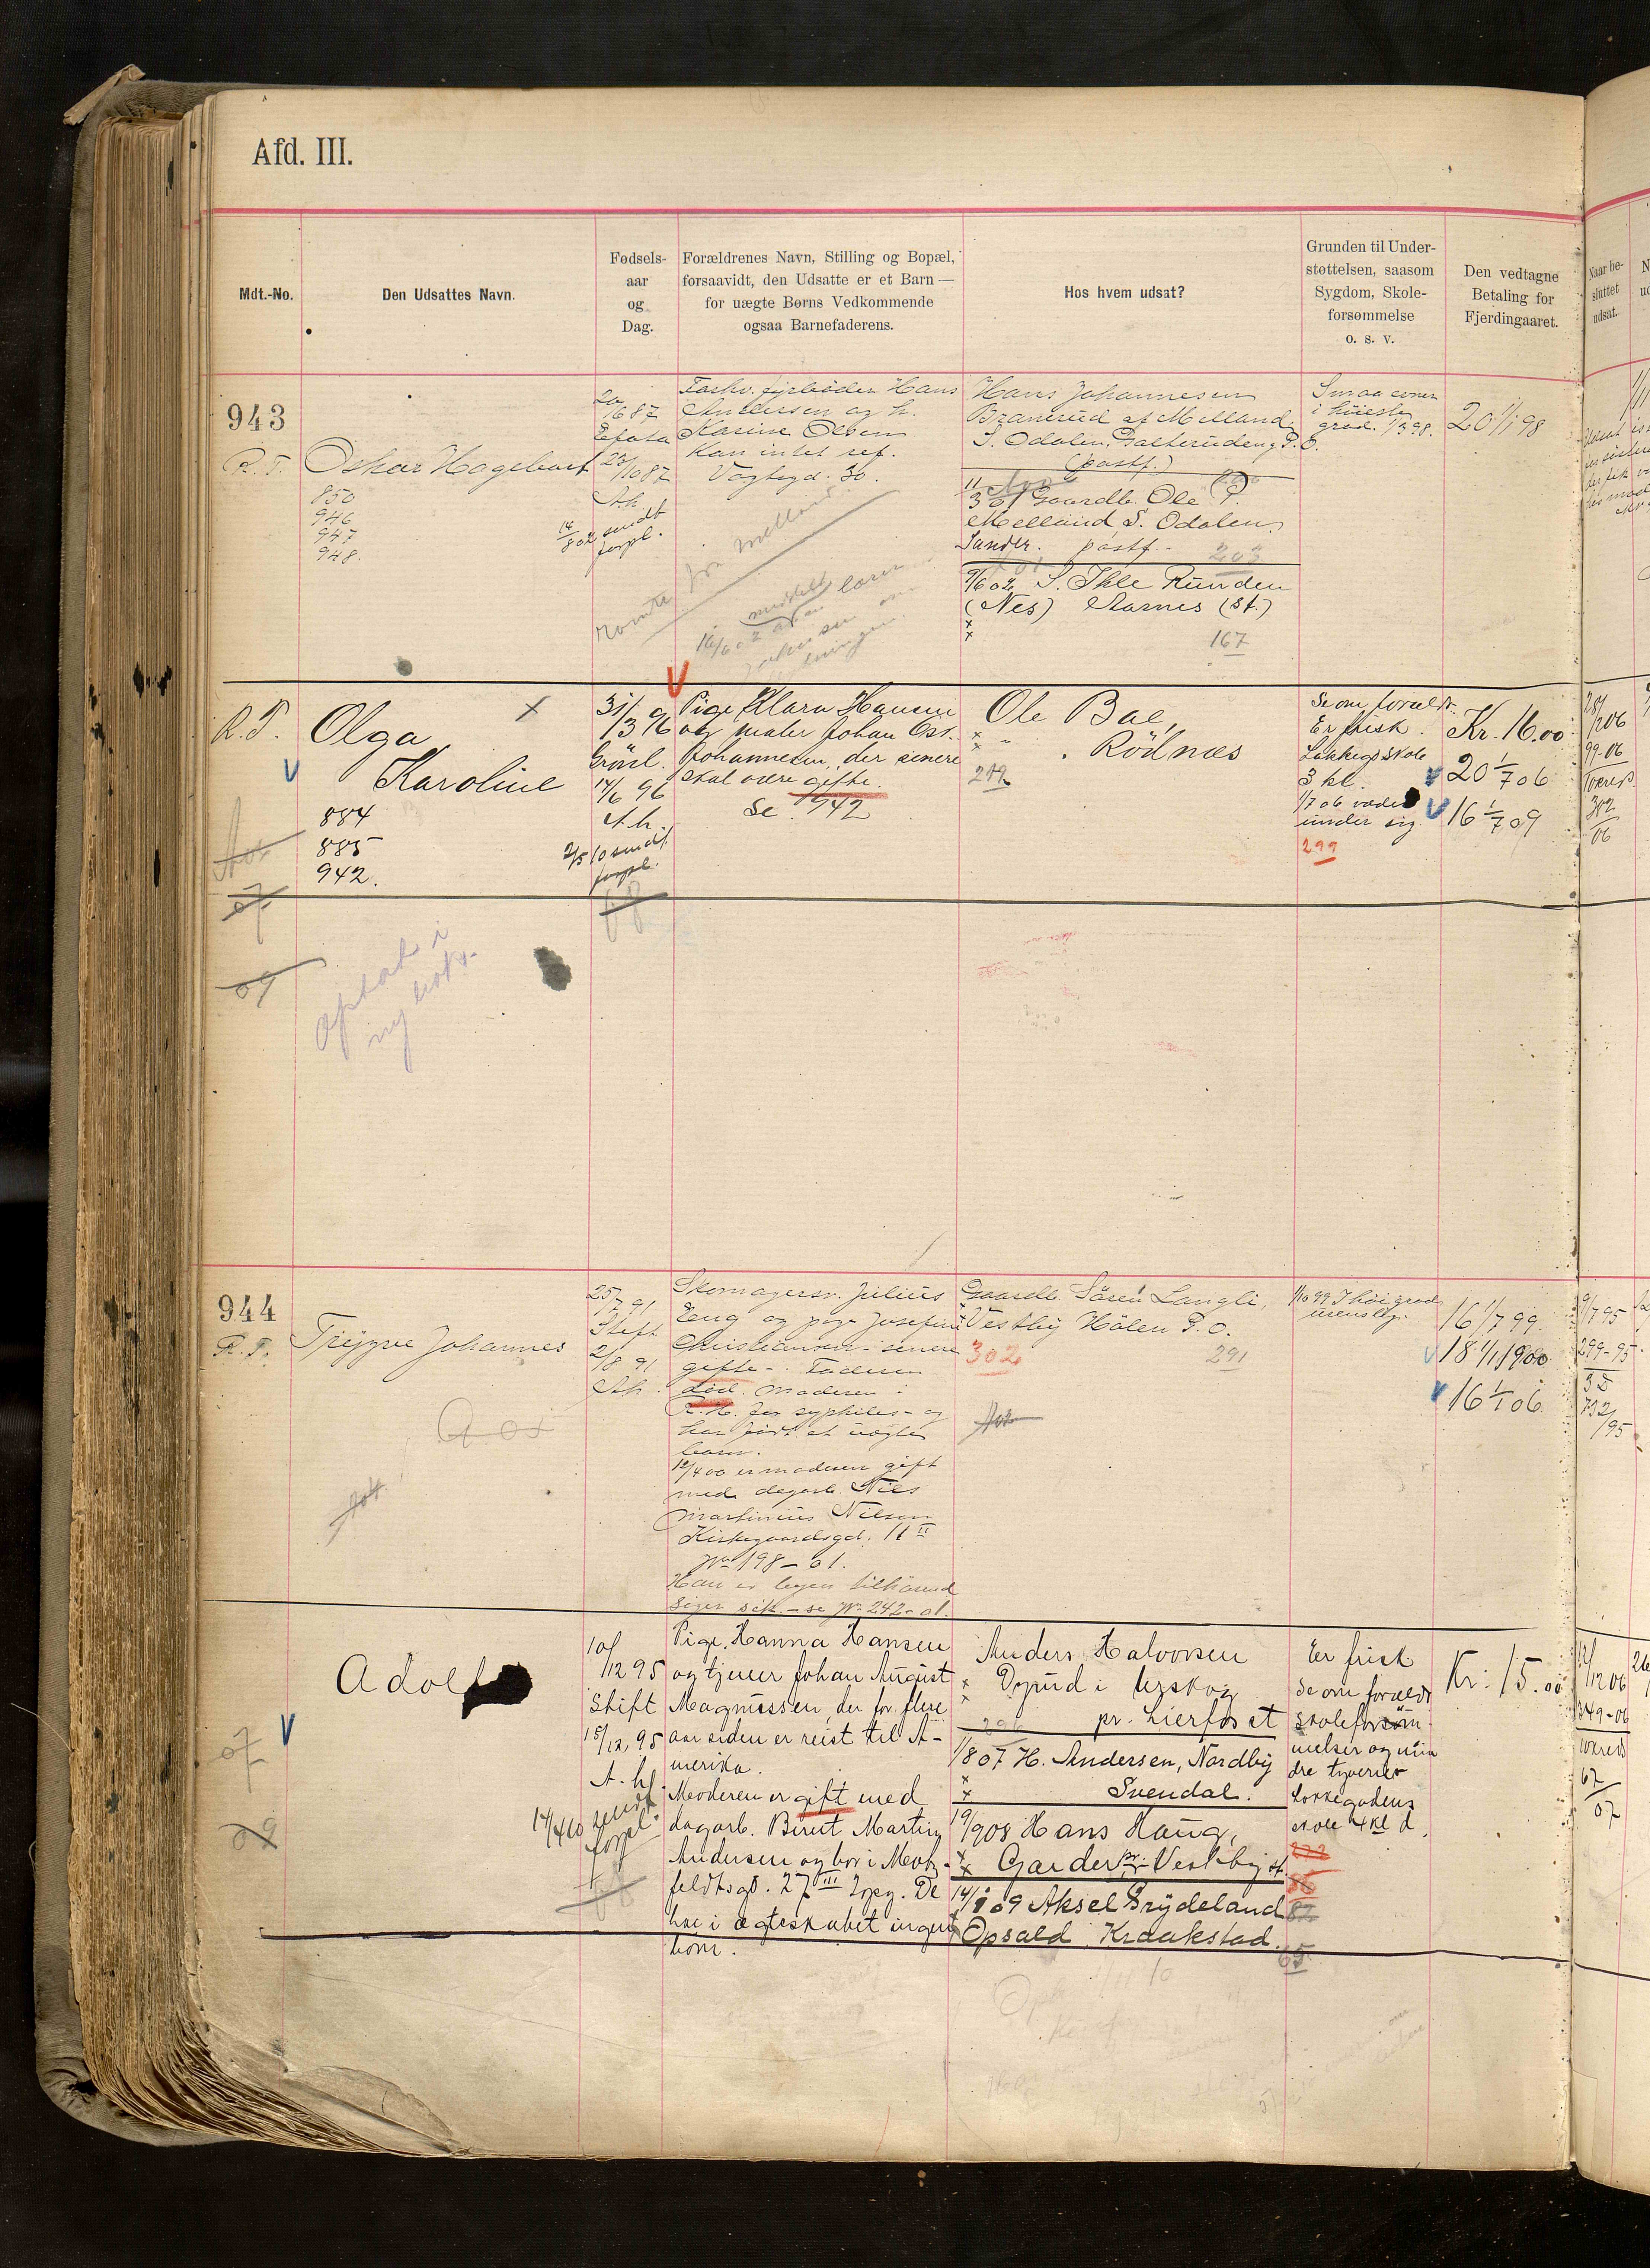 Afd. III.
Mdt.-No.
Den Udsattes Navn.
Fødsels-
aar
og
Dag.
Forældrenes Navn, Stilling og Bopæl,
forsaavidt, den Udsatte er et Barn —
for uægte Børns Vedkommende
ogsaa Barnefaderens.
Hos hvem udsat?
Grunden til Under-
støttelsen, saasom
Sygdom, Skole-
forsømmelse
o. s. v.
Den vedtagne
Betaling for
Fjerdingaaret.
Naar be-
sluttet
udsat.
943
R. T.
Oskar Hagebart
850
946
947
948.
20/6 87
23/10 87
A.h.
14/8 02 sendt
forpl.
Forhv. fyrbøder Hans
Andersen og h.
Karine Olsen
Kan intet ref.
Vognsgd. 30.
Hans Johannesen
Branerud af Melland
S. Odalen, Galterudeng P.O.
(postf.)
Gaardb. Ole P.
Melland S. Odalen,
Sander. postf. -
203
9/6 02 S. Ihle Runden
(Nes) Aarnes (st.)
x
x
167
Smaa evner
i høieste
grad. 1/3 98.
20 1/1 98
R. T.
Olga
Karoline
x
884
885
942.
07
09
opført i
ny
31/3 96
Grønl.
14/6 96
A.h.
2/5 10 sendt
forpl.
Pige Klara Hansen
og maler Johan Osc.
Johannesen, der senere
skal være gifte.
Se 942
Ole Bae,
x
x
Rödnæs
219
Se om foræld.
Er frisk.
Lakkegs skole
3 kl.
1/7 06 væder
under sig.
299
Kr. 16.00
20 1/7 06
16 1/7 09
28/12 06
99-06
302
06
944
R. T.
Trygve Johannes
25/7 91
Stift
2/8 91
A.h.
Skomagersv. Julius
Eng og pige Josefine
Christiansen - senere
gifte -. Faderen
død. Moderen i
R. H. for syphiles - og
har født et uægte
barn.
12/4 00 er moderen gift
med dagarb. Nils
Martinius Nilsen
Kirkegaardsgd. 11 II
No 198 - 01.
Han er løgen tilhørend
- se No 242 - 01.
Gaardb. Søren Langli,
Vestby Hølen P. O.
302
291
1/10 99 I høi grad
urenslig.
16 1/7 99
18 1/1 1900
16 1/1 06.
9/7 95
299-95
732/95
Adolf
07
09
10/12 95
Stift
15/12 95
A.h.
14/4 10 sendt
forpl.
Pige Hanna Hansen
og tjener Johan August
Magnussen, der for flere
aar siden er reist til A-
merika.
Moderen er gift med
dagarb. Berut Martin
Andersen og bor i Motz-
feldtsgd. 27 III Opg. De
har i ægteskabet ingen
børn.
Anders Halvorsen
x
x
Dyrud i Urskog
pr. Lierfoset
296
1/8 07 H. Andersen, Nordby
x
x
Svendal.
19/9 08 Hans Haug,
x
x
Garder pr. Vestby st.
Aksel Brydeland
Opsald Kraakstad.
65
Er frisk
Se om foræld.
skoleforsøm-
melser og min
dre tyverier
Lakkegadens
skole 4 kl d.
Kr: 15.00
12/12 06
349-06
67
07